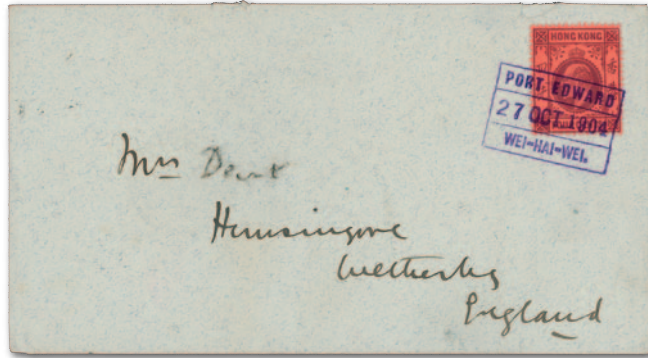 HONG KONG
PORT EDWARD
27 OCT 1904
WEI-HAI-WEI.
Mrs Dent
Wetherby
England